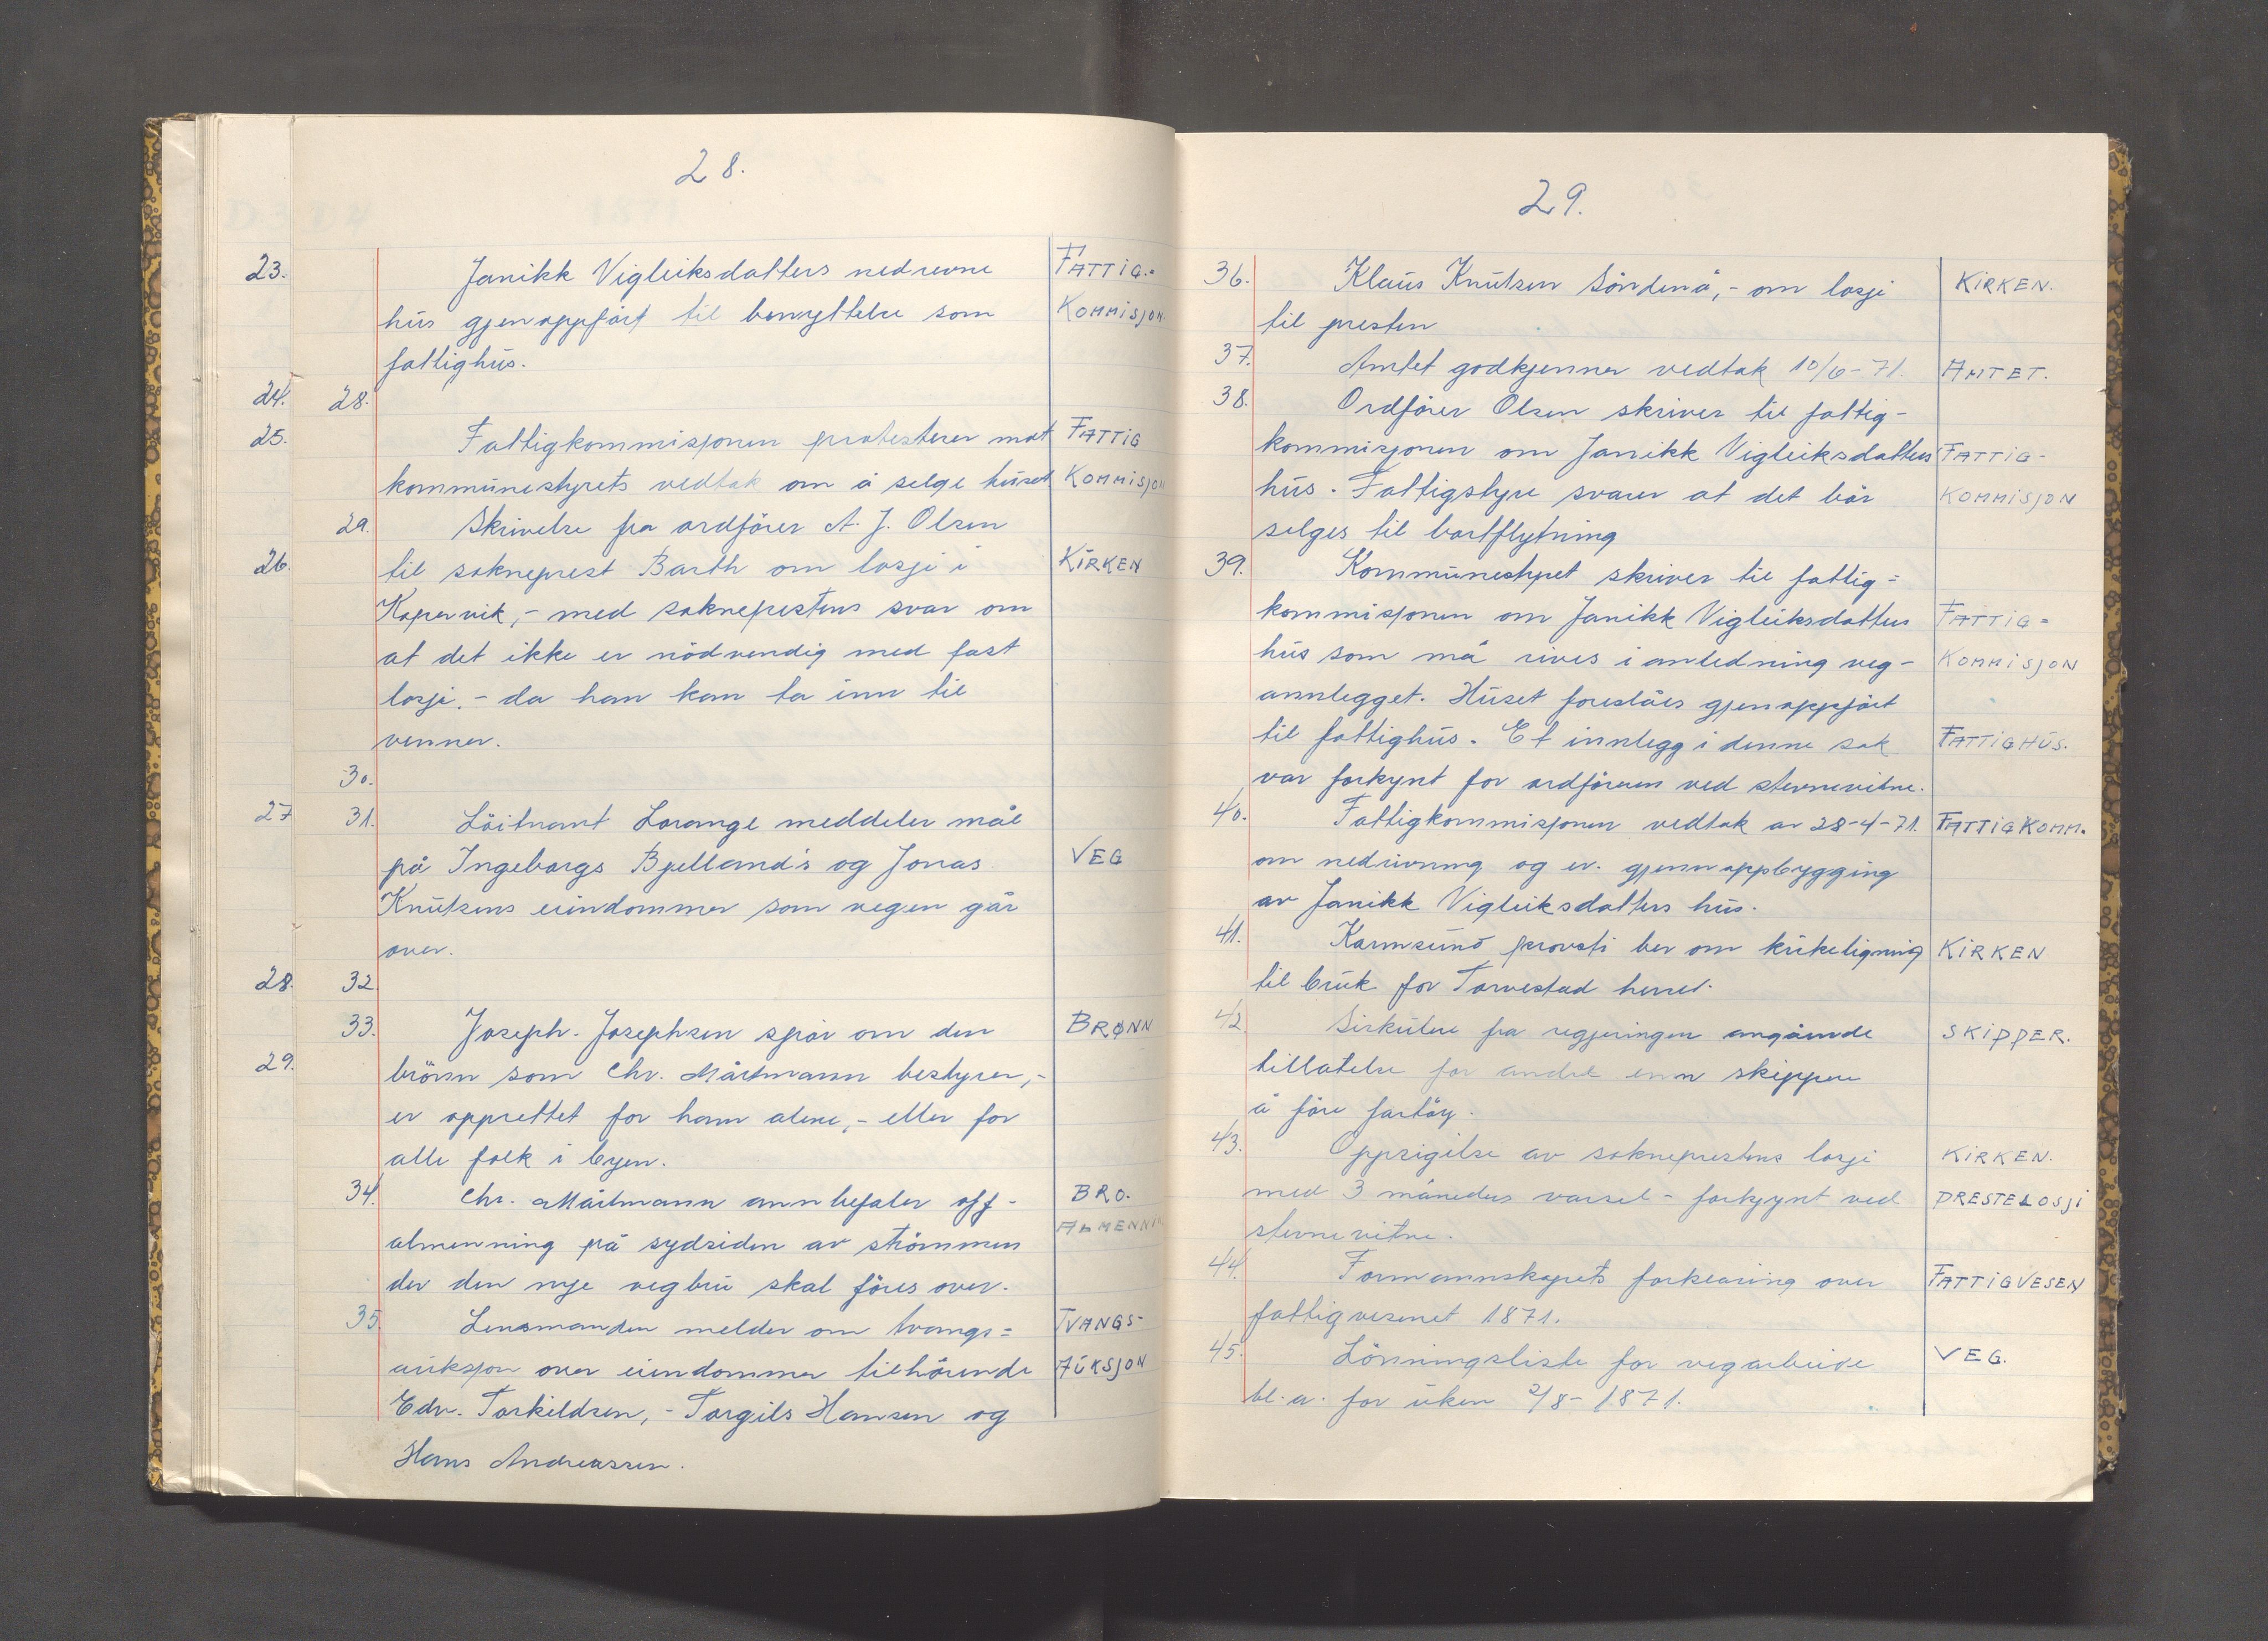 28.
23. Janikk Vigleiksdatters nedrevne FATTIG.=
hus gjenoppført til benyttelse som KOMMISJON.
fattighus.
24. 28.
25. Fattigkommisjonen protesterer mot FATTIG
kommunestyrets vedtak om å selge huset KOMMISJON
29. Skrivelse fra ordförer A. J. Olsen
26. til sokneprest Barth om losji i KIRKEN
Kopervik,- med sokneprestens svar om
at det ikke er nödvendig med fast
losji.- da han kan ta inn til
venner.
30.
27 31. Löitnant Lorange meddeler mål
på Ingeborgs Bjelland's og Jonas VEG
Knutsens eiendommer som vegen går
over.
28. 32.
33. Joseph. Josephsen spör om den BRØNN
29. brönn som Chr. Mårtmann bestyrer,-
er opprettet for ham alene,- eller for
alle folk i byen.
34. Chr. Mårtmann annbefaler off- BRO.
ALMENNIN
almenning på sydsiden av strömmen
der den nye vegbru skal föres over.
35. Lensmanden melder om tvangs= TVANGS-
auksjon over eiendommer tilhörende AUKSJON
Edv. Torkildsen,- Torgils Hansen og
Hans Andreassen.
29.
36. Klaus Knutsen Söndenå,- om losji KIRKEN.
til presten
37. Amtet godkjenner vedtak 10/6-71. AMTET.
38. Ordförer Olsen skriver til fattig-
kommisjonen om Janikk Vigleiksdatters FATTIG-
hus. Fattigstyre svarer at det bör KOMMISJON
selges til bortflytning
39. Kommunestyret skriver til fattig=
kommisjonen om Janikk Vigleiksdatters FATTIG=
hus som må rives i anledning veg- KOMMISJON
annlegget. Huset foreslåes gjenoppfört
til fattighus. Et innlegg i denne sak FATTIGHUS.
var forkynt for ordföreren ved stevnevitne.
40. Fattigkommisjonen vedtak av 28-4-71. FATTIGKOMM.
om nedrivning og ev. gjennoppbygging
av Janikk Vigleiksdatters hus.
41. Karmsund prosti ber om kirkeligning KIRKEN
til bruk for Torvestad herred.
42. Sirkulære fra regjeringen angående SKIPPER.
tillatelse for andre enn skippere
å före fartöy.
43. Oppsigelse av sokneprestens losji KIRKEN.
med 3 måneders varsel - forkynt ved PRESTELOSJI
stevnevitne.
44. Formannskapets forklaring over FATTIGVESEN
fattigvesenet 1871.
45. Lönningsliste for vegarbeide VEG.
bl.a. for uken 2/8-1871.